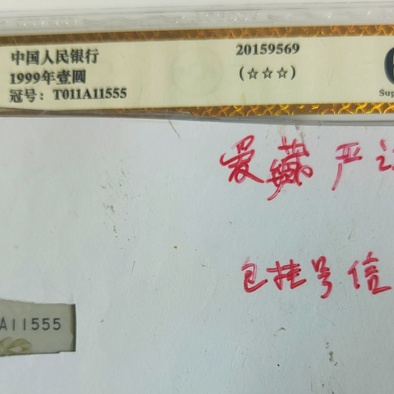 中国人民银行 20159569
1999年壹圆 (☆☆☆)
冠号: T011A11555
Sup
爱藏 严
包挂号信
A11555